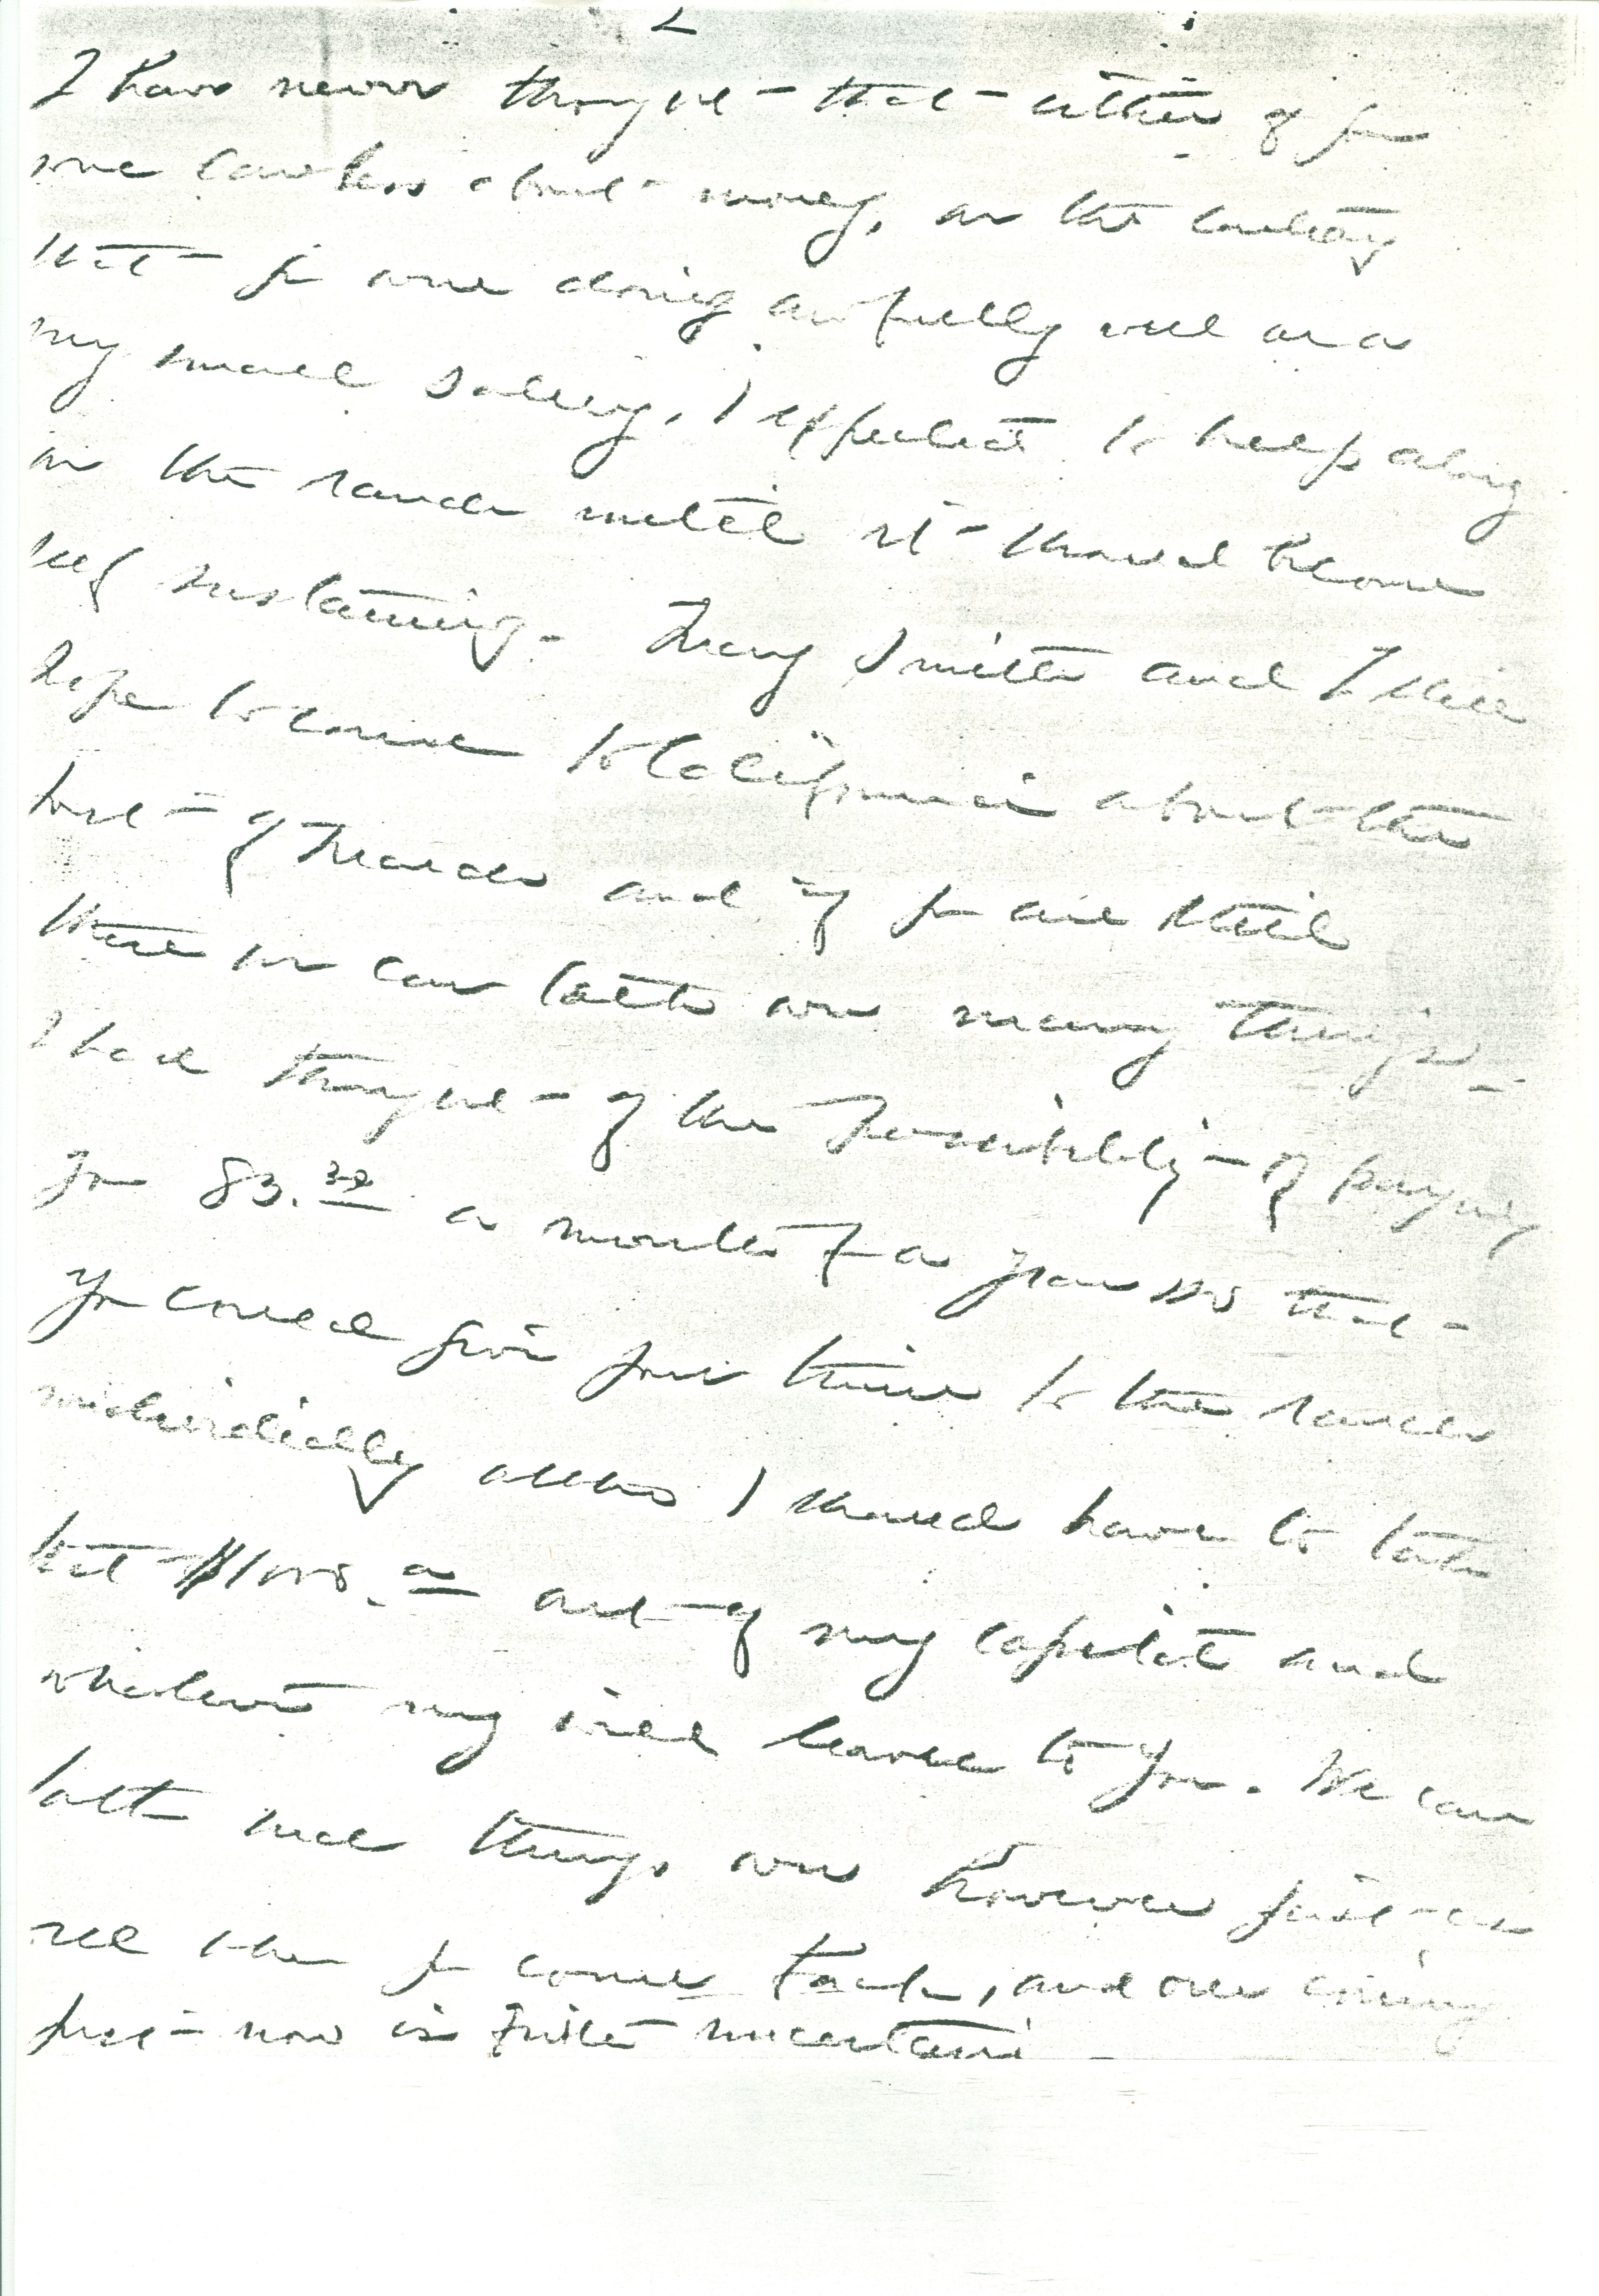 2
I have never thought that either of you
were careless about money, on the contrary
that you were doing awfully well on a
very small salary, I expected to help along
on the ranch until it should become
self sustaining - Mary Smith and I still
hope to come to California about the
first of March and if you are still
there we can talk over many things -
I had thought of the possibility of paying
you 83.32 a month for a year so that
you could give your time to the ranch
I should have to take
that $1000.00 out of my capital and
my will leaves to you. We can
talk such things over however just as
well when you come back, and our coming
just now is quite uncertain -